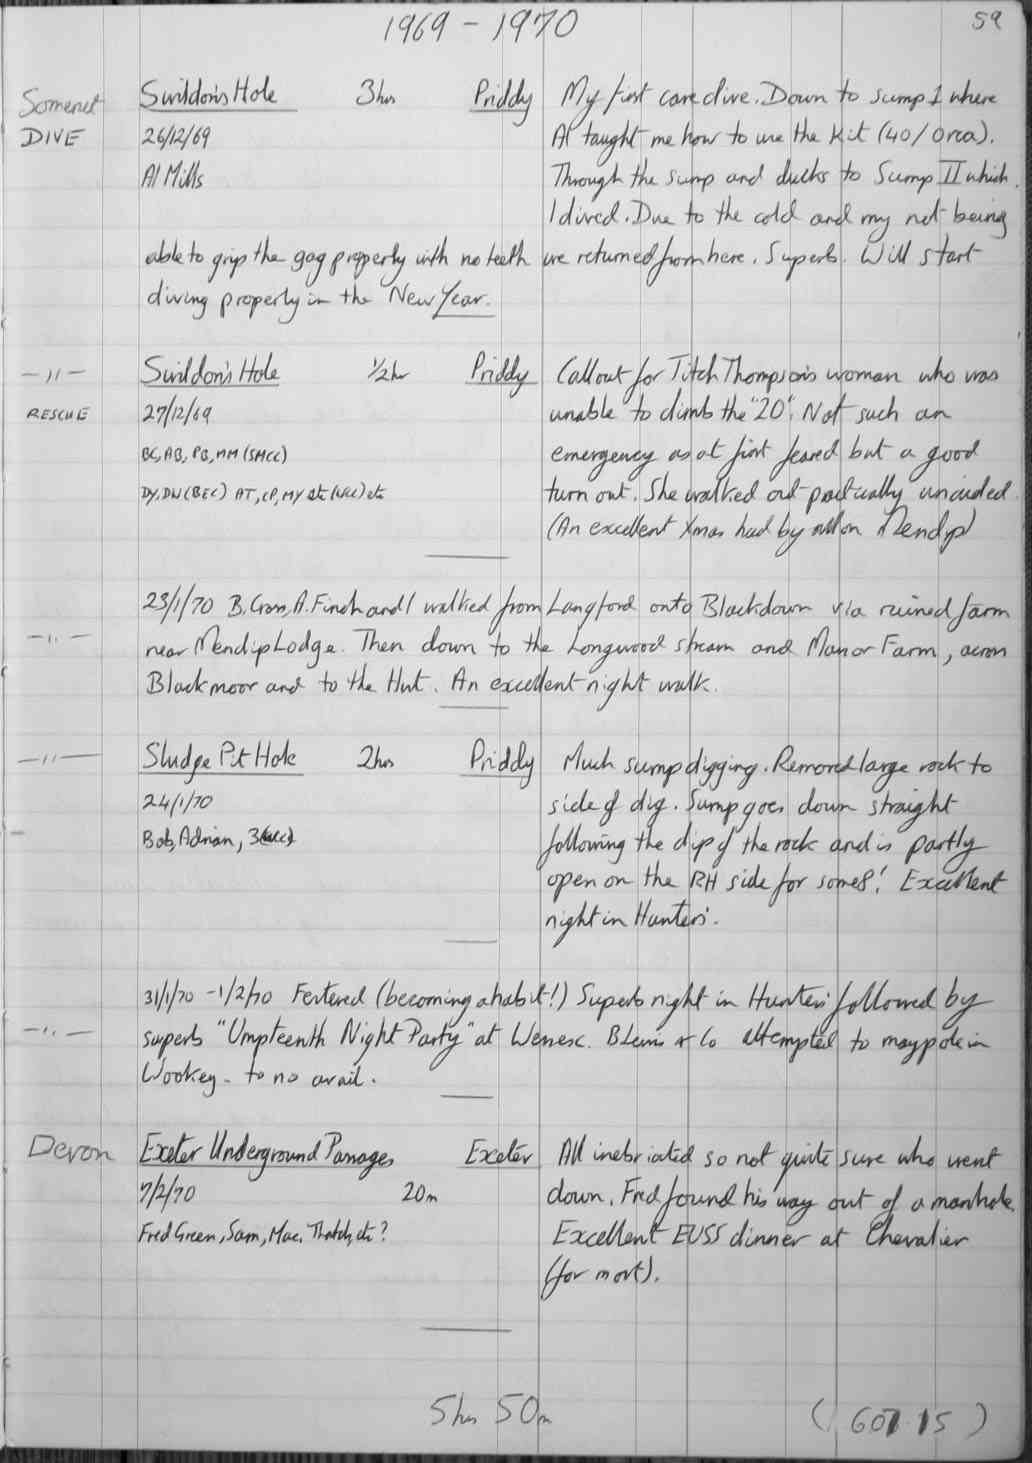 1969 - 1970 59
Somerset Swildon's Hole 3hrs Priddy My first cave dive. Down to sump 1 where
DIVE 26/12/69 Al taught me how to use the kit (40/Orca).
Al Mills Through the sump and ducks to Sump II which
I dived. Due to the cold and my not being
able to grip the gag properly with no teeth we returned from here. Superb. Will start
diving properly in the New Year.
—"— Swildon's Hole ½hr Priddy Callout for Titch Thompson's woman who was
RESCUE 27/12/69 unable to climb the "20". Not such an
BC, AB, PB, MM (SMCC) emergency as at first feared but a good
DY, DW (BEC) AT, CP, MY etc (WCC) etc turn out. She walked out practically unaided.
(An excellent Xmas had by all on Mendip)
23/1/70 B. Cross, A. Finch and I walked from Langford onto Blackdown via ruined farm
—"— near Mendip Lodge. Then down to the Longwood stream and Manor Farm, across
Blackmoor and to the Hut. An excellent night walk.
—"— Sludge Pit Hole 2hrs Priddy Much sump digging. Removed large rock to
24/1/70 side of dig. Sump goes down straight
Bob, Adrian, 3 following the dip of the rock and is partly
open on the RH side for some 8'. Excellent
night in Hunters'.
31/1/70 - 1/2/70 Festered (becoming a habit!) Superb night in Hunters' followed by
—"— superb "Umpteenth Night Party" at Wessex. B Lewis & Co attempted to maypole in
Wookey - to no avail.
Devon Exeter Underground Passages Exeter All inebriated so not quite sure who went
7/2/70 20m down. Fred found his way out of a manhole.
Fred Green, Sam, Mac, Thatch, etc? Excellent EUSS dinner at Chevalier
(for most).
5hrs 50m ( 607 15 )